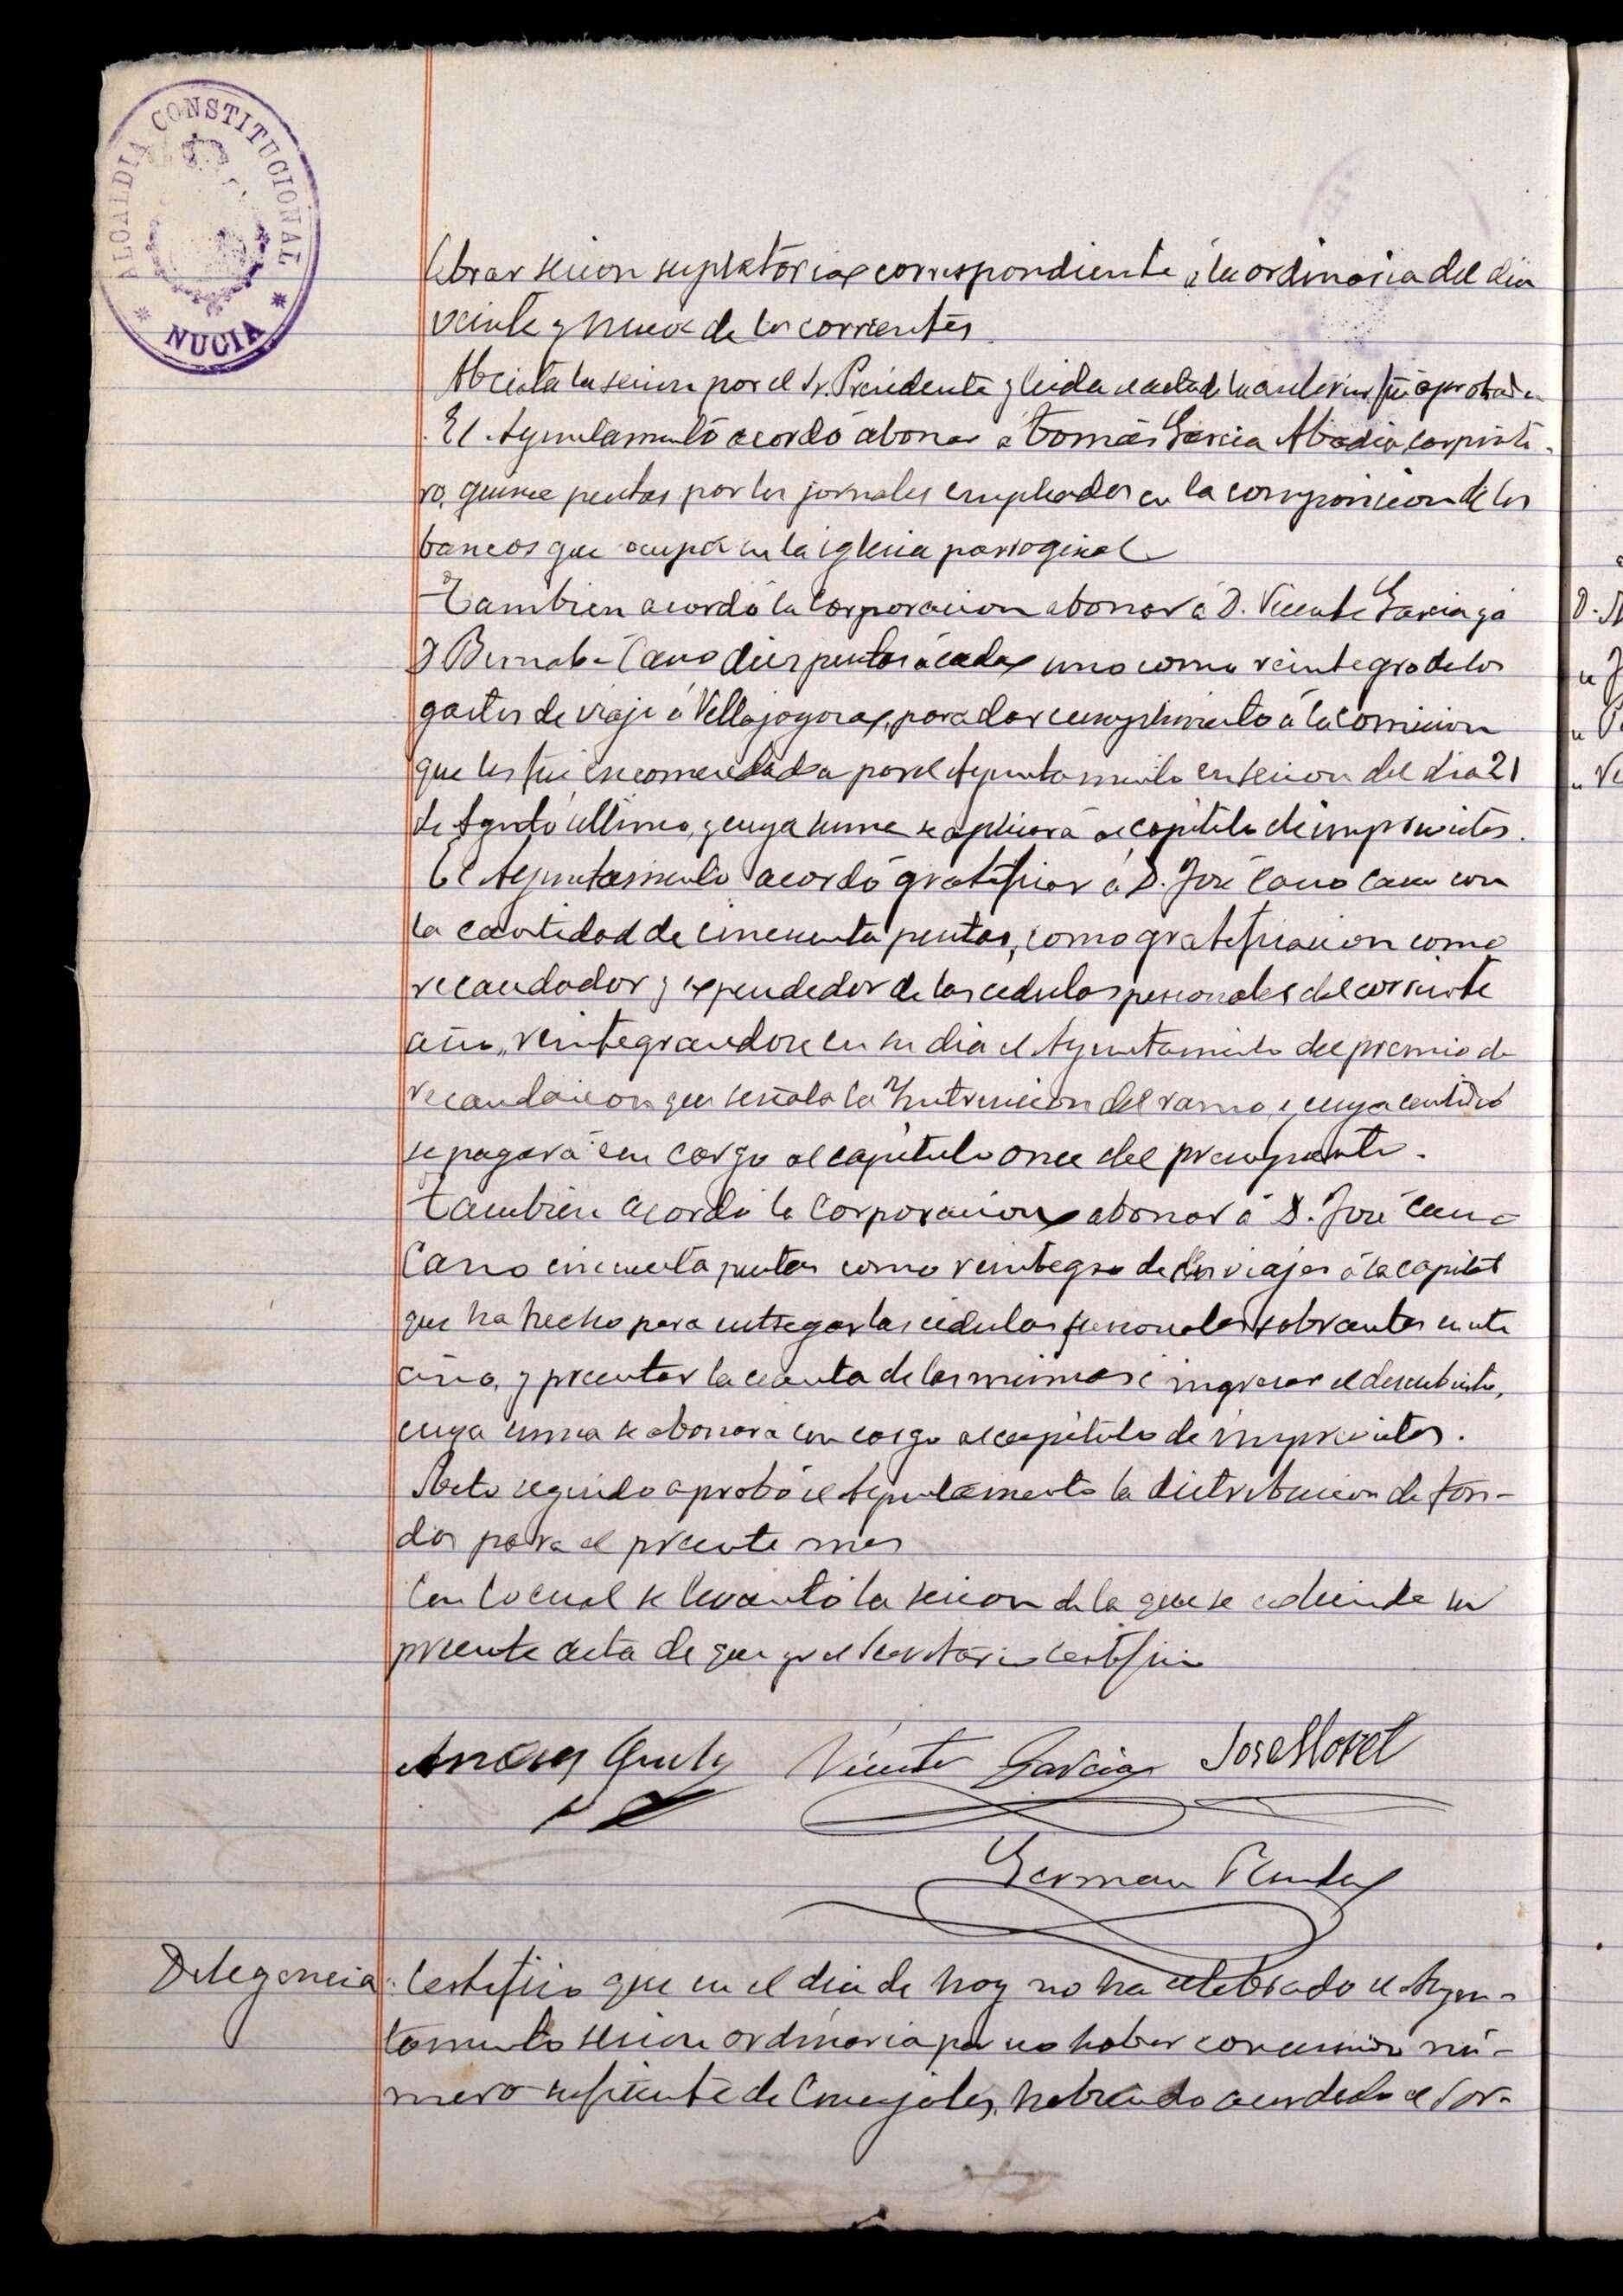 ALCALDIA CONSTITUCIONAL
* NUCIA *
lebrar sesion supletoria correspondiente á la ordinaria del dia
veinte y nueve de los corrientes.
Abierta la sesion por el Sr. Presidente y leida el acta de la anterior fué aprobada
El Ayuntamiento acordó abonar á Tomás Garcia Abadia, carpinte-
ro, quince pesetas por los jornales empleados en la composicion de los
bancos que ocupa en la iglesia parroquial
Tambien acordó la Corporacion abonar á D. Vicente Garcia y á
D Bernabé Cano diez pesetas á cada uno como reintegro de los
gastos de viaje á Villajoyosa, para dar cumplimiento á la comision
que les fué encomendada por el Ayuntamiento en sesion del dia 21
de Agosto último, y cuya suma se aplicará al capitulo de imprevistos.
El Ayuntamiento acordó gratificar á D. José Cano Cano con
la cantidad de cincuenta pesetas, como gratificacion como
recaudador y expendedor de las cedulas personales del corriente
año, reintegrandose en su dia el Ayuntamiento del premio de
recaudacion que señala la Instruccion del ramo, y cuya cantidad
se pagará con cargo al capitulo once del presupuesto.
Tambien acordó la Corporacion abonar á D. José Cano
Cano cincuenta pesetas como reintegro de los viajes á la capital
que ha hecho para entregar las cedulas personales sobrantes en este
año, y presentar la cuenta de las mismas é ingresar el descubierto,
cuya suma se abonará con cargo al capitulo de imprevistos.
Acto seguido aprobó el Ayuntamiento la distribucion de fon-
dos para el presente mes
Con lo cual se levantó la sesion de la que se estiende la
presente acta de que yo el Secretario certifico
Vicente Garcia José Lloret
German
Diligencia: Certifico que en el dia de hoy no ha celebrado el Ayun-
tamiento sesion ordinaria por no haber concurrido nú-
mero suficiente de Concejales, habiendo acordado el Sor.